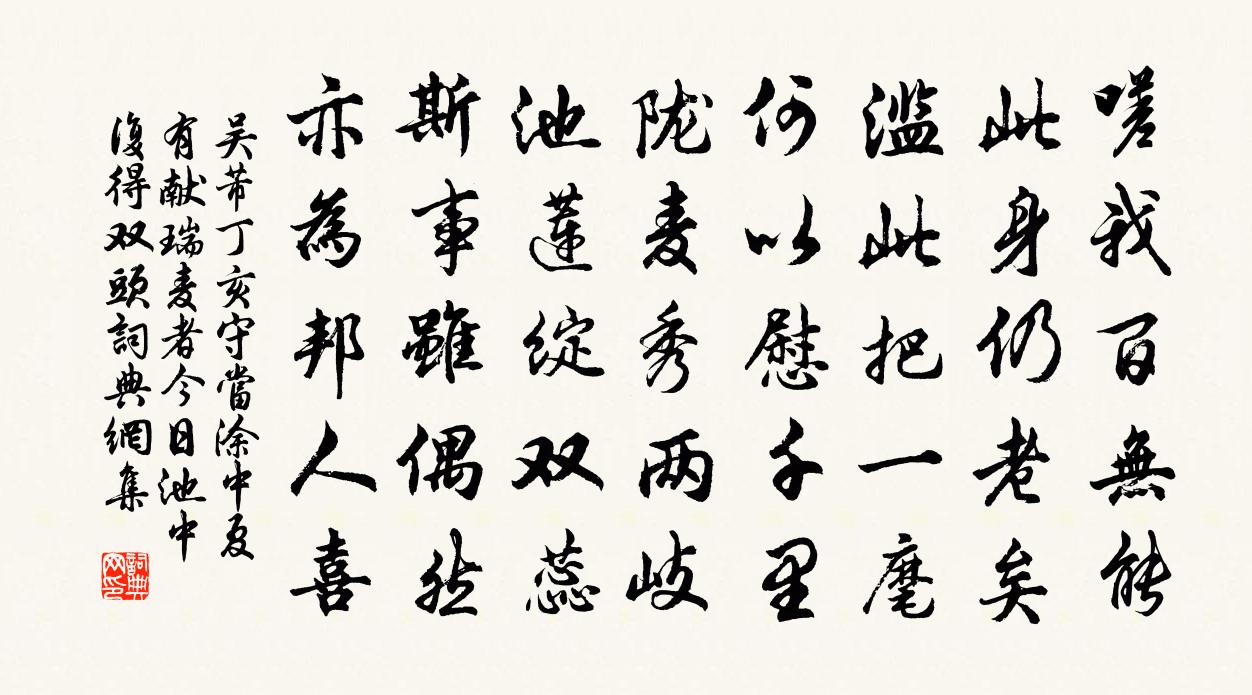 嗟我百無能
此身仍老矣
濫此把一麾
何以慰千里
陇麦秀两岐
池蓮綻双蕊
斯事雖偶然
亦為邦人喜
吴芾丁亥守當涂中夏
有献瑞麦者今日池中
復得双頭詞典網集
詞典
网印